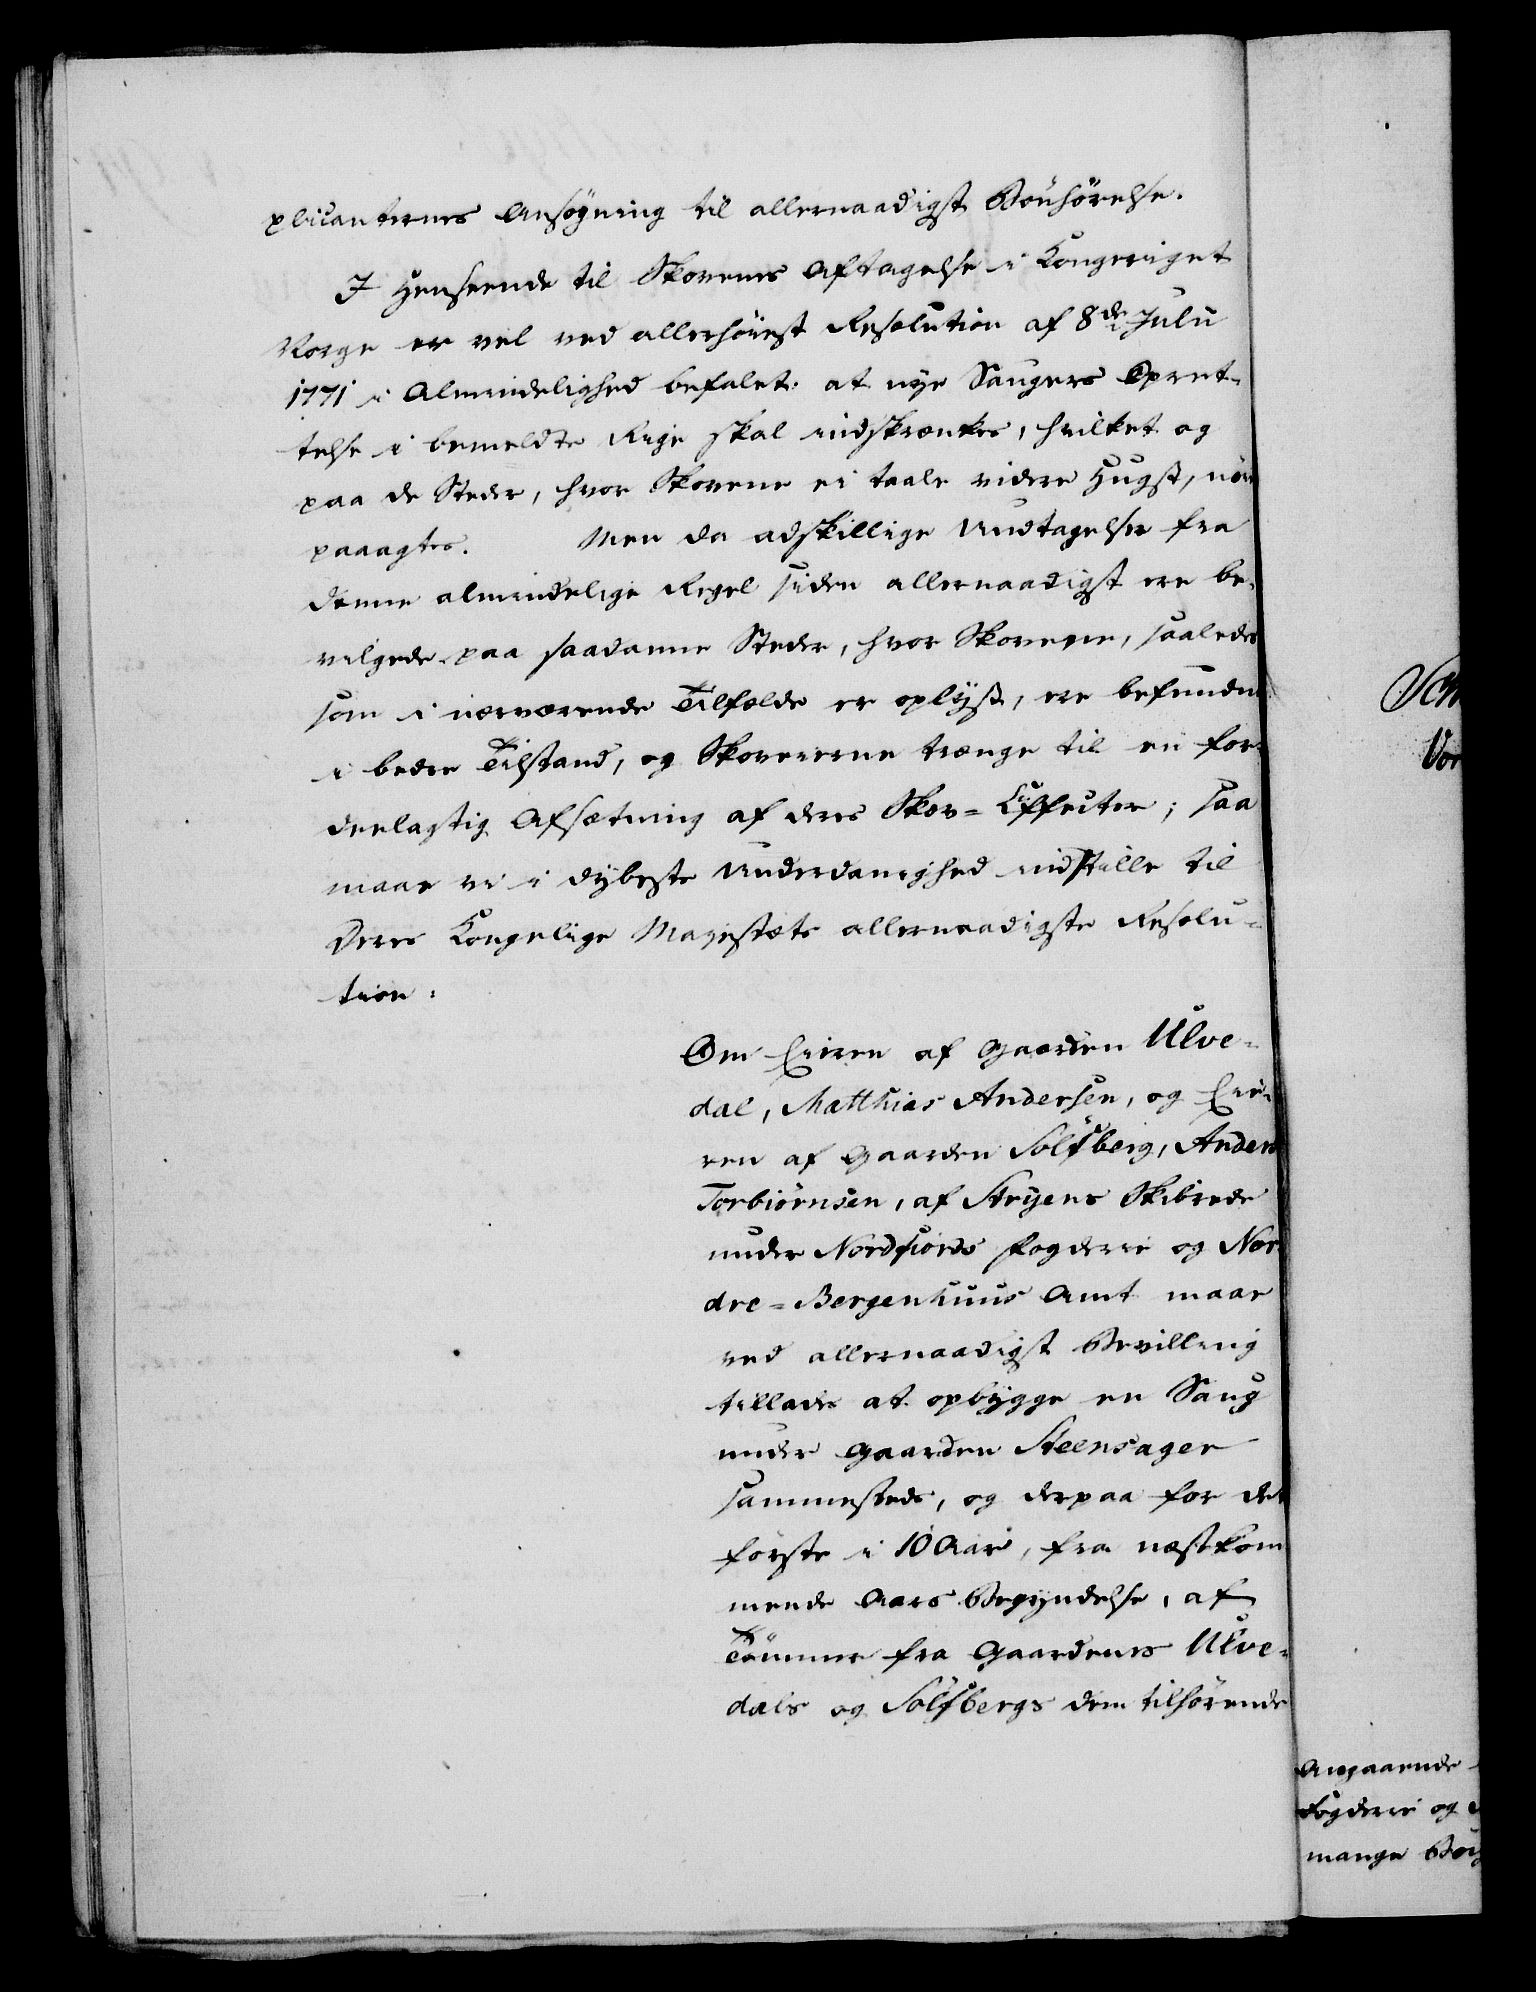 plicanternes Ansøgning til allernaadigst Bönhörelse.
I Henseende til Skovenes Aftagelse i Kongeriget
Norge er vel ved allerhöiest Resolution af 8de Julii
1771 i Almindelighed befalet: at nye Saugers Opret-
telse i bemeldte Rige skal indskrænkes, hvilket og
paa de Steder, hvor Skovene ei taale videre Hugst, nöie
paaagtes. Men da adskillige Undtagelser fra
denne almindelige Regel siden allernaadigst ere be-
vilgede paa saadanne Steder, hvor Skovene, saaledes
som i nærværende Tilfælde er oplÿst, ere befundne
i bedre Tilstand, og Skoveierne trænge til en for-
deelagtig Afsætning af deres Skov-Effecter; saa
maae vi i dÿbeste Underdanighed indstille til
Deres Kongelige Majestæts allernaadigste Resolu-
tion:
Om Eieren af Gaarden Ulve-
dal, Matthias Andersen, og Eie-
ren af Gaarden Solfberg, Anders
Torbiörnsen, af Stryens Skibrede
under Nordfiords Fogderie og Nor-
dre-Bergenhuus Amt maae
ved allernaadigst Bevilling
tillades at opbÿgge en Saug
under Gaarden Steensager
sammesteds, og derpaa for det
förste i 10 Aar, fra næstkom-
mende Aars Begÿndelse, af
Tömmer fra Gaardenes Ulve-
dals og Solfbergs dem tilhörende
Angaaende
Fogderie og
mange